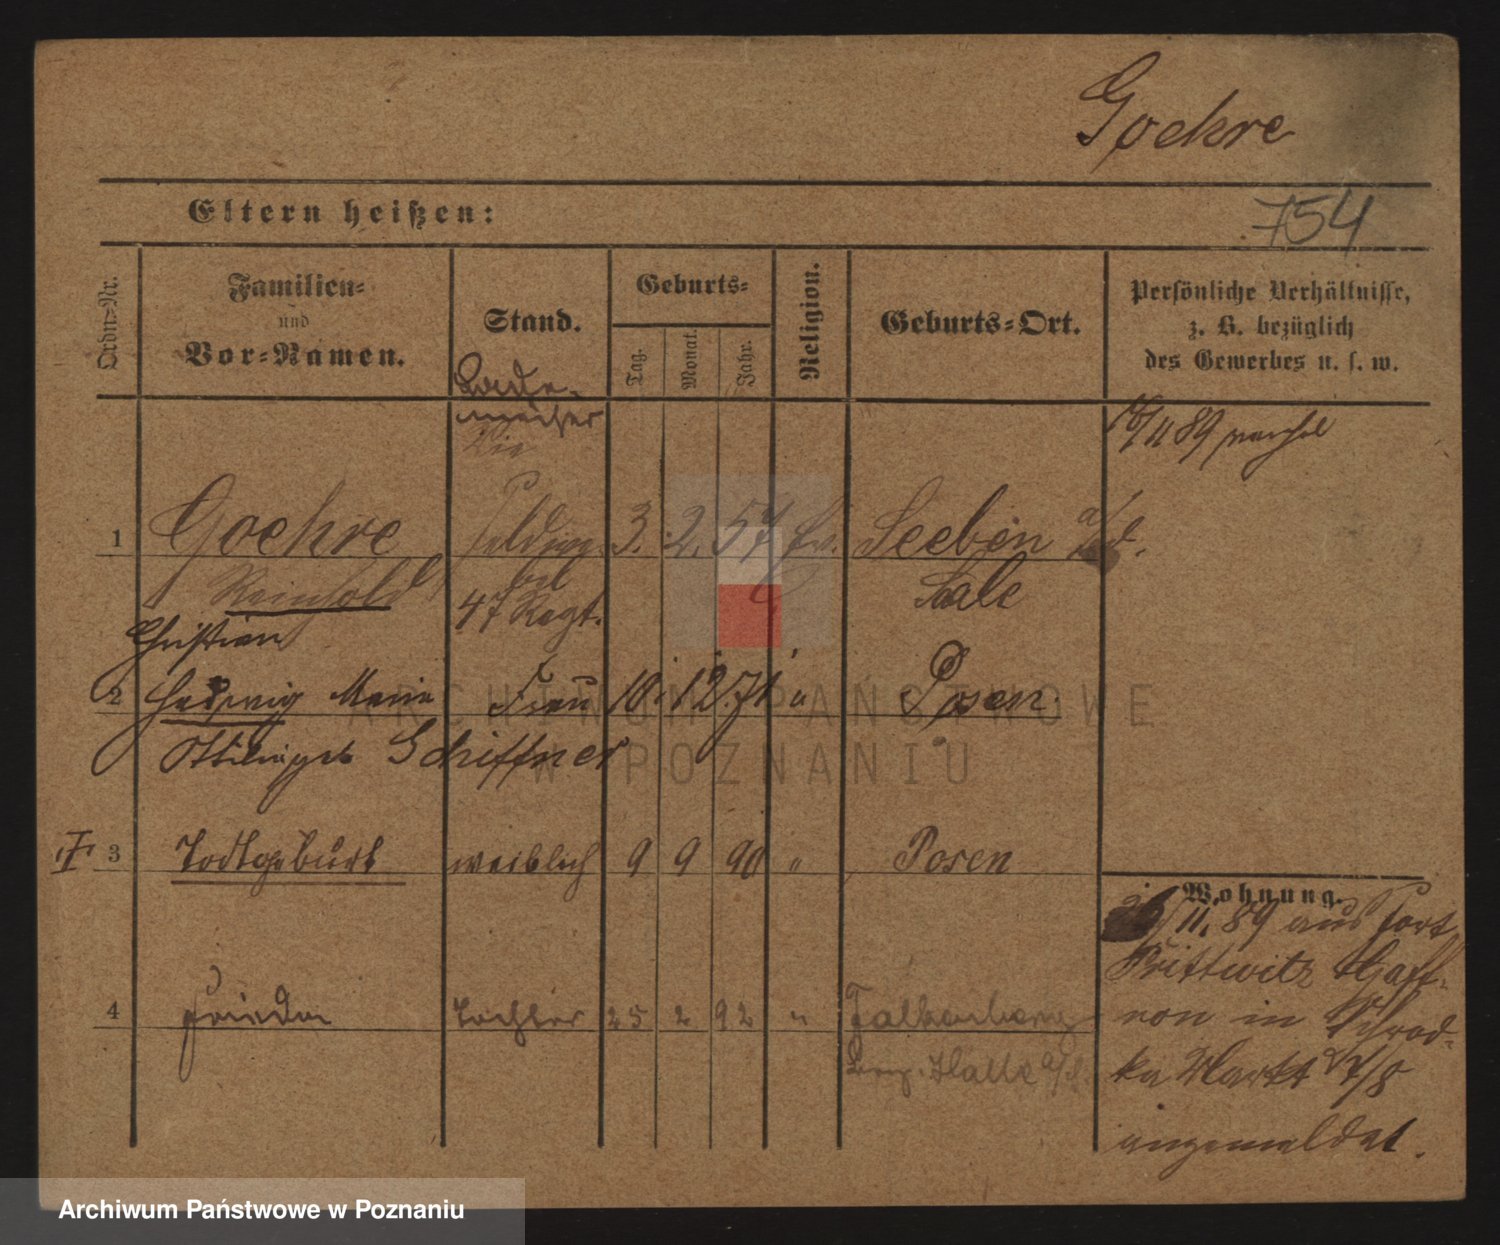 Goehre
Eltern heißen:
754
Ordn=Nr.
Familien=
und
Vor=Namen.
Stand.
Geburts=
Tag.
Monat.
Jahr.
Religion.
Geburts=Ort.
Persönliche Verhältnisse,
z. B. bezüglich
des Gewerbes u. s. w.
Lade-
meister
11 89
1 Goehre 3. 2. 57 Ev. Seeben a/d.
Reinhold bei Saale
47 Regt.
Christian
2 Hedwig Maria Frau 10. 12. 71 " Posen.
Schiffner
3 Todtgeburt weiblich 9 9 90 " Posen
4 Frieda Tochter 25 2 92 " Falkenberg
Bez. Halle a/S.
Wohnung.
11. 89 aus Fort
Prittwitz Gaff-
ron in Schrod-
ka Markt 7/8
angemeldet.
ARCHIWUM PAŃSTWOWE
W POZNANIU
Archiwum Państwowe w Poznaniu